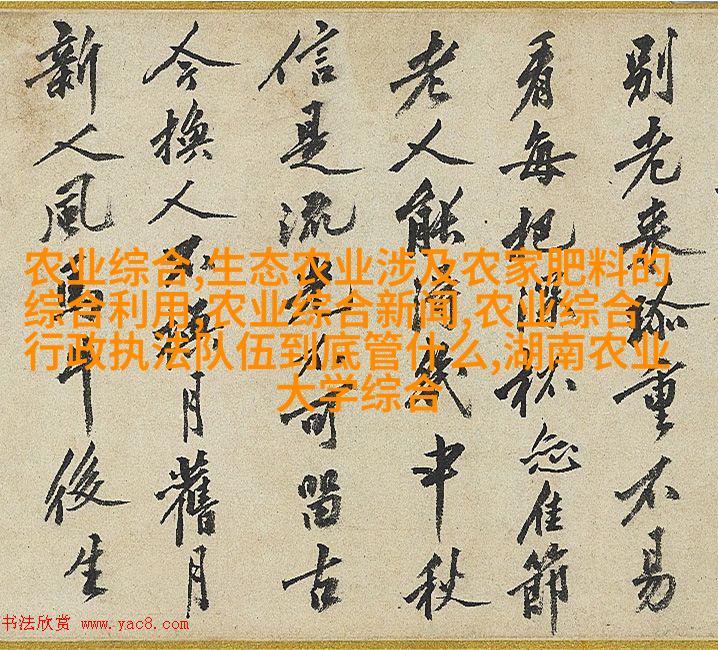 别老来重不易
看每把佳節
老人能幾中秋
信是流可留古
今換人不月舊月
新人風馬牛後生
农业综合,生态农业涉及农家肥料的
综合利用,农业综合新闻,农业综合
行政执法队伍到底管什么,湖南农业
大学综合
书法欣赏 www.yac8.com